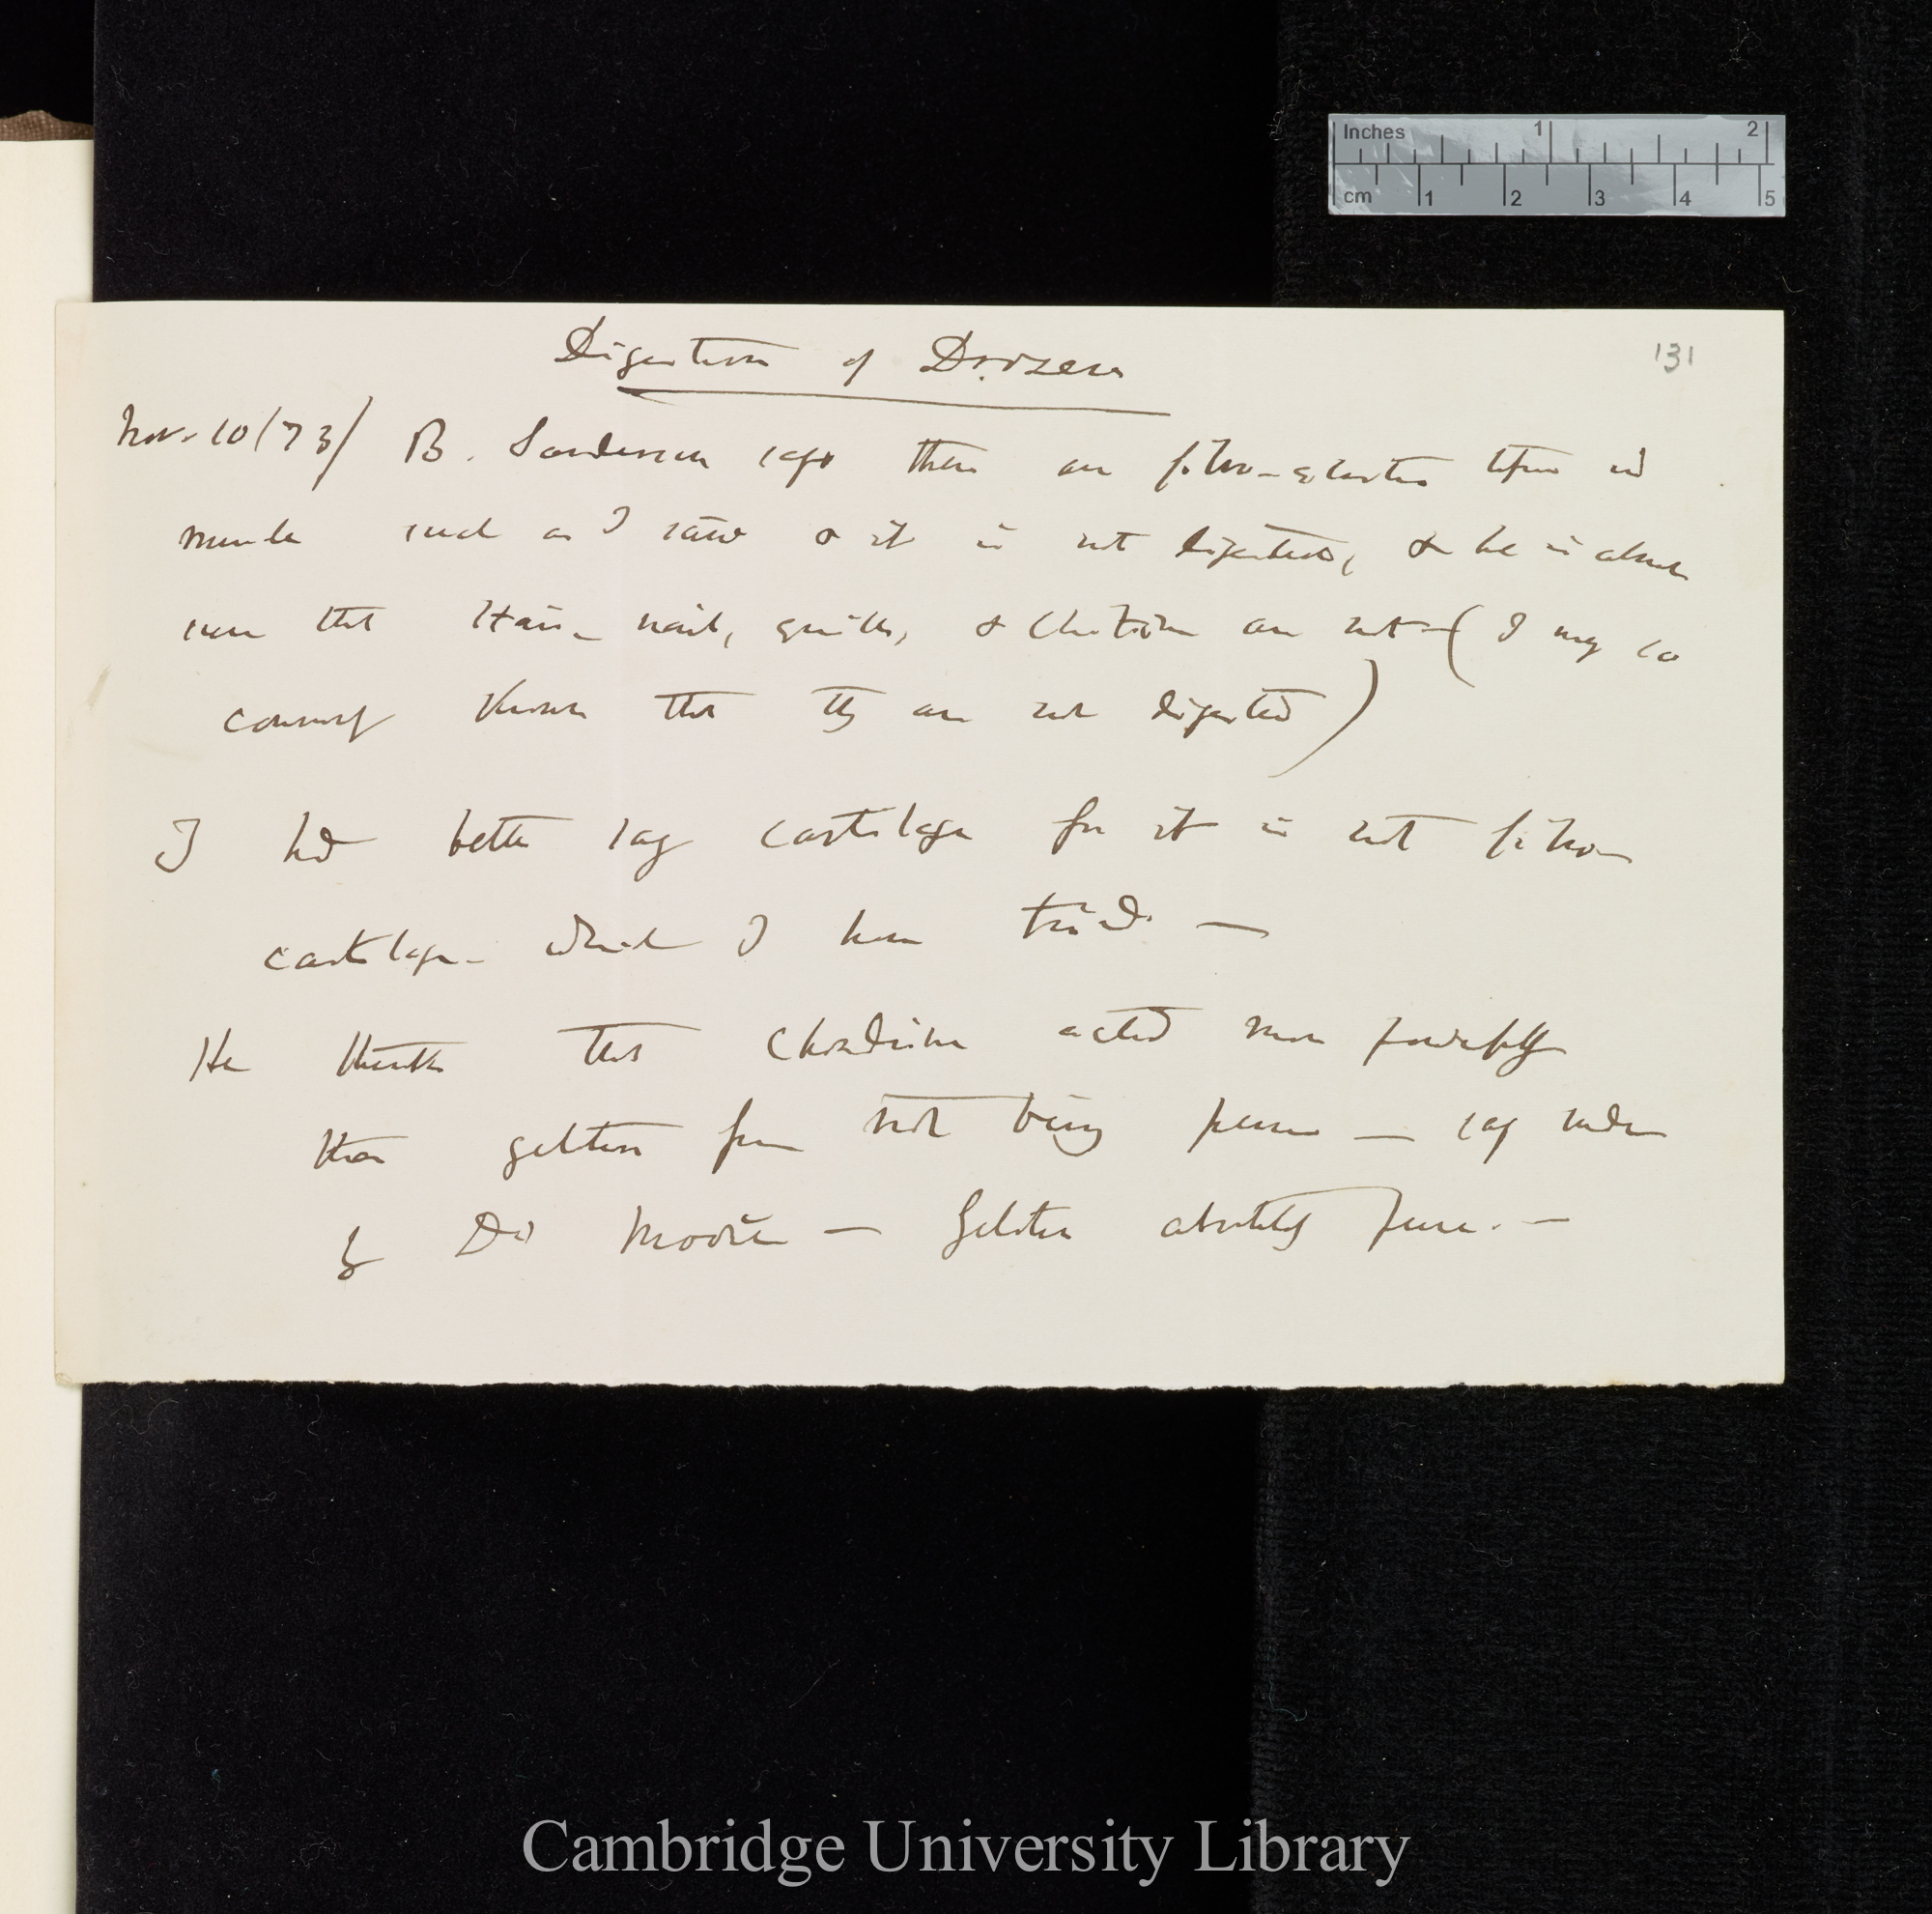 Inches 1 2
cm 1 2 3 4 5
131
Digestion of Drosera
Nov. 10/73/ B. Sanderson says there are fibro-elastic tissue in
muscle such as I saw & it is not digested, & he is almost
sure that Hair - nails, quills, & Chitine are not — (I may say
commonly known that they are not digested)
I had better say cartilage for it is not fibro-
cartilage - which I have tried —
He thinks that Chondrine acted more powerfully
than gelatine from not being pure — say under
by Dr Moore — Gelatine absolutely pure. —
Cambridge University Library